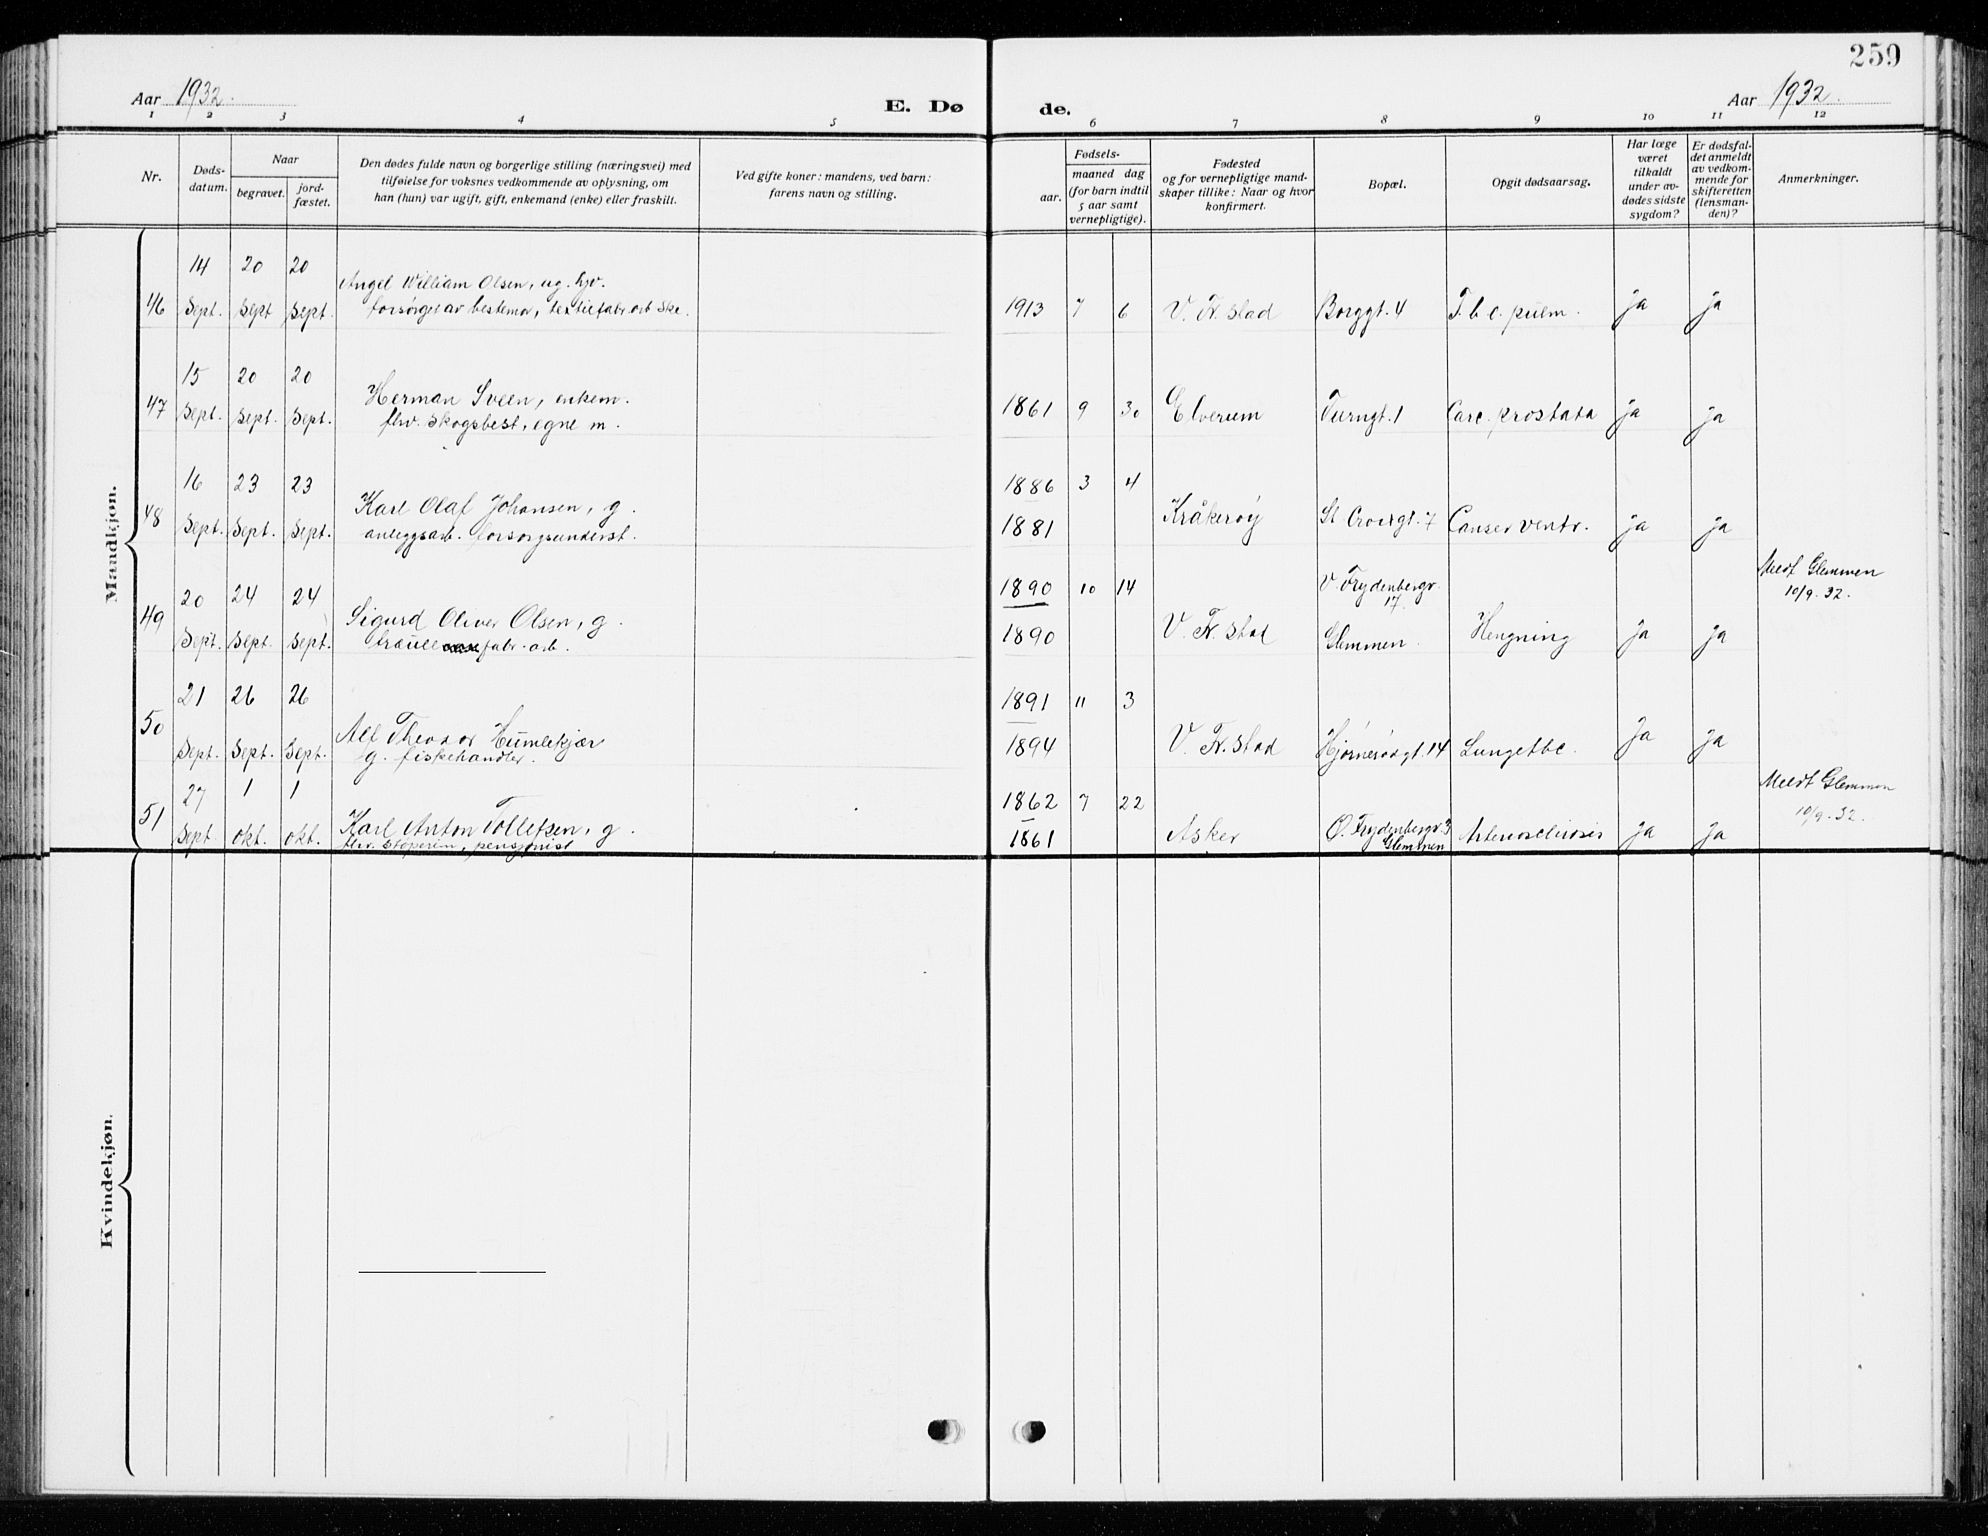 259
Aar 1932.
E. Dø
de.
Aar 1932.
1 2 3 4 5 6 7 8 9 10 11 12
Nr.
Døds-
datum.
Naar
begravet.
jord-
fæstet.
Den dødes fulde navn og borgerlige stilling (næringsvei) med
tilføielse for voksnes vedkommende av oplysning, om
han (hun) var ugift, gift, enkemand (enke) eller fraskilt.
Ved gifte koner: mandens, ved barn:
farens navn og stilling.
Fødsels-
aar.
maaned dag
(for barn indtil
5 aar samt
vernepligtige).
Fødested
og for vernepligtige mand-
skaper tillike: Naar og hvor
konfirmert.
Bopæl.
Opgit dødsaarsag.
Har læge
været
tilkaldt
under av-
dødes sidste
sygdom?
Er dødsfal-
det anmeldt
av vedkom-
mende for
skifteretten
(lensman-
den)?
Anmerkninger.
Mandkjøn.
14 20 20
Angel William Olsen, ug. hjv.
46 Sept. Sept Sept. forsørget av bestemor, textilfabr. arb. Ske. 1913 7 6 V. Fr.stad Borggt. 4 T.b.c. pulm. ja ja
15 20 20
Herman Sveen, enkem.
47 Sept. Sept. Sept. fhv. skogsbest, egne m. 1861 9 30 Elverum Turngt. 1 Carc. prostata ja ja
16 23 23 1886 3 4
Karl Olaf Johansen, g.
48 Sept. Sept. Sept. anleggsarb. forsorgsunderst. 1881 Kråkerøy St. Croixgt. 7 Canser ventr. ja ja
20 24 24 1890 10 14 V Frydenbergv. 17. Meldt Glemmen
10/9. 32.
Sigurd Oliver Olsen, g.
49 Sept. Sept. Sept. fabr. arb. 1890 V. Fr.stad Glemmen. Hengning ja ja
21 26 26 1891 11 3
Alf Theodor Humlekjær
50 Sept. Sept. Sept. g. fiskehandler. 1894 V. Fr.stad Hjørnerødgt. 14 Lungetbc. ja ja
27 1 1 1862 7 22 Meldt Glemmen
10/9. 32.
Karl Anton Tollefsen, g.
51 Sept okt. okt. fhv. støperim, pensjonist 1861 Asker Ø. Frydenbergv. 3
Glemmen Arteriosclirosis ja ja
Kvindekjøn.